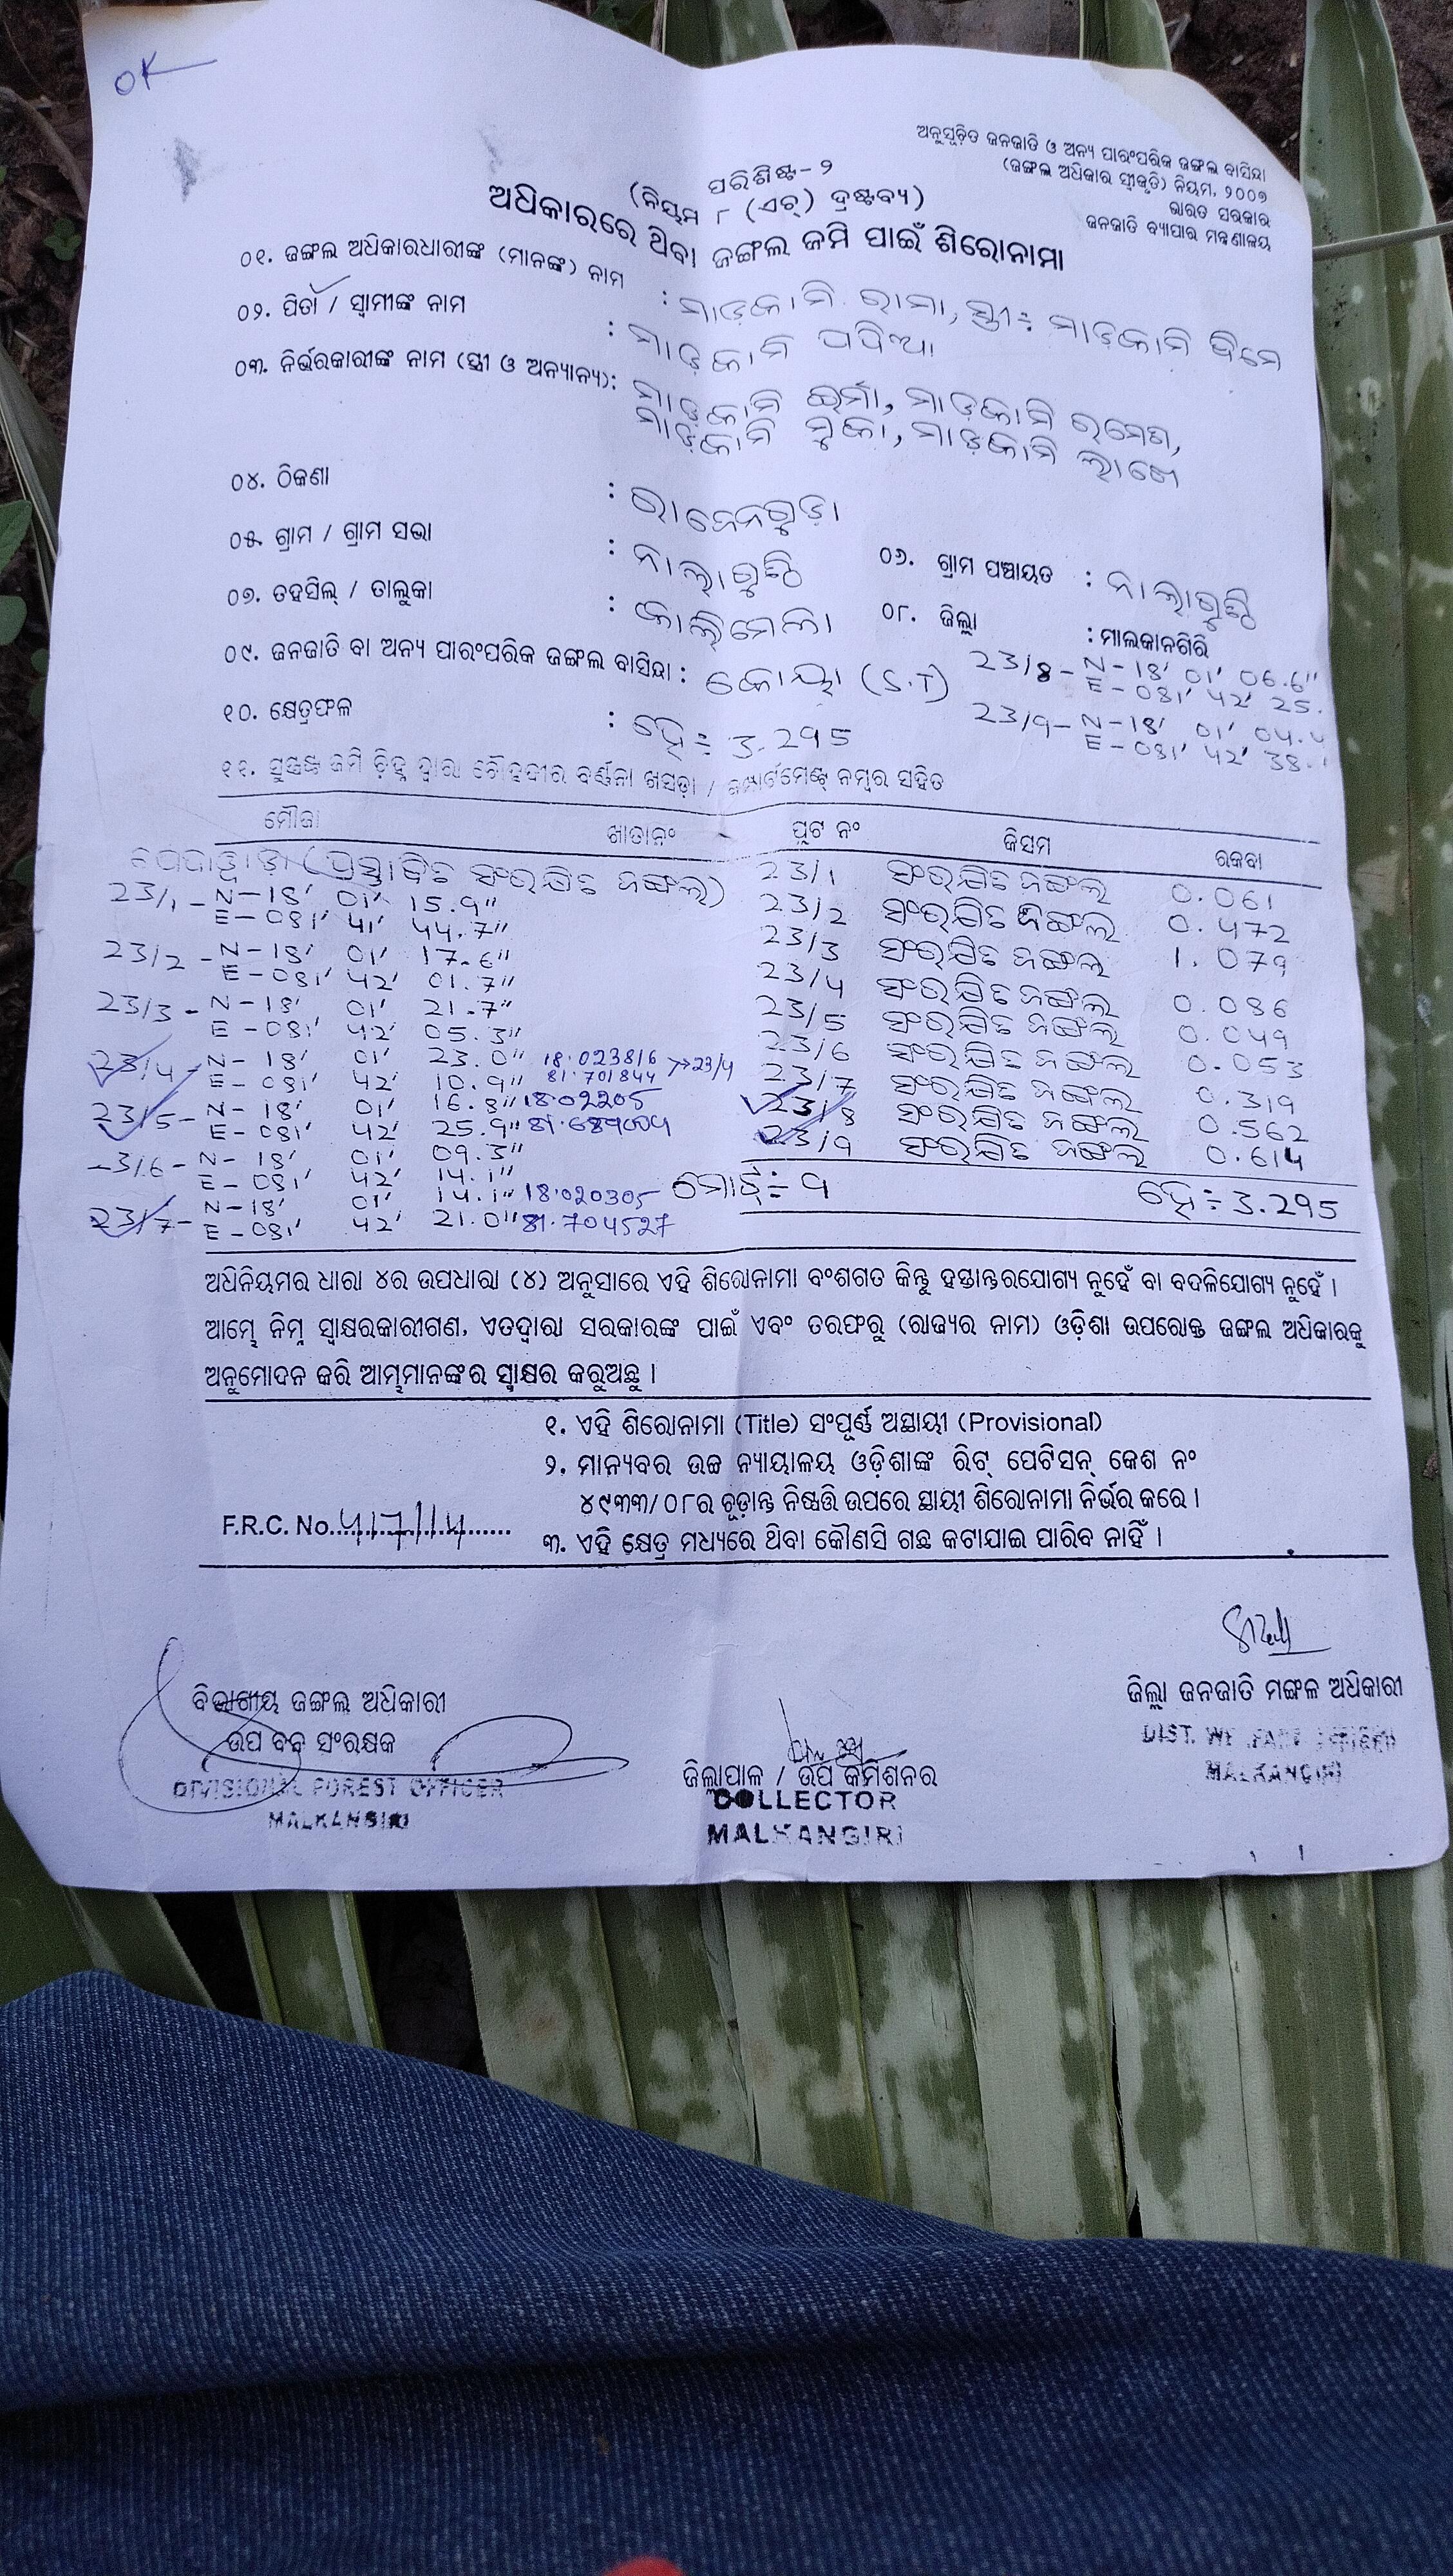 OK
ଅନୁସୂଚିତ ଜନଜାତି ଓ ଅନ୍ୟ ପାରଂପରିକ ଜଙ୍ଗଲ ବାସିନ୍ଦା
(ଜଙ୍ଗଲ ଅଧିକାର ସ୍ୱୀକୃତି) ନିୟମ, ୨୦୦୭
ଭାରତ ସରକାର
ଜନଜାତି ବ୍ୟାପାର ମନ୍ତ୍ରଣାଳୟ
ପରିଶିଷ୍ଟ-୨
(ନିୟମ ୮ (ଏଚ୍) ଦ୍ରଷ୍ଟବ୍ୟ)
ଅଧିକାରରେ ଥିବା ଜଙ୍ଗଲ ଜମି ପାଇଁ ଶିରୋନାମା
୦୧. ଜଙ୍ଗଲ ଅଧିକାରଧାରୀଙ୍କ (ମାନଙ୍କ) ନାମ : ମାଡ଼କାମି ରାମା, ସ୍ତ୍ରୀ÷ ମାଡ଼କାମି
୦୨. ପିତା / ସ୍ୱାମୀଙ୍କ ନାମ : ମାଡ଼କାମି
୦୩. ନିର୍ଭରକାରୀଙ୍କ ନାମ (ସ୍ତ୍ରୀ ଓ ଅନ୍ୟାନ୍ୟ): ମାଡ଼କାମି ଇର୍ମା, ମାଡ଼କାମି ରମେଶ,
ମାଡ଼କାମି ମୁକା, ମାଡ଼କାମି
୦୪. ଠିକଣା :
୦୫. ଗ୍ରାମ / ଗ୍ରାମ ସଭା : ନାଲାଗୁଣ୍ଠି ୦୬. ଗ୍ରାମ ପଞ୍ଚାୟତ : ନାଲାଗୁଣ୍ଠି
୦୭. ତହସିଲ୍ / ତାଲୁକା : କାଲିମେଳା ୦୮. ଜିଲ୍ଲା : ମାଲକାନଗିରି
୦୯. ଜନଜାତି ବା ଅନ୍ୟ ପାରଂପରିକ ଜଙ୍ଗଲ ବାସିନ୍ଦା : କୋୟା (S.T)
23/8 - N-18' 01' 06.6"
E-081' 42' 25.
୧୦. କ୍ଷେତ୍ରଫଳ : ହେ÷ 3.295
23/9 - N-18' 01' 04.4
E-081' 42' 38.
୧୧. ସୁସ୍ପଷ୍ଟ ଜମି ଚିହ୍ନ ଦ୍ୱାରା ଚୌହଦୀର ବର୍ଣ୍ଣନା ଖସଡ଼ା / କମ୍ପାର୍ଟମେଣ୍ଟ୍ ନମ୍ବର ସହିତ
ମୌଜା ଖାତାନଂ ପ୍ଲଟ ନଂ କିସମ ରକବା
(ପ୍ରସ୍ତାବିତ ସଂରକ୍ଷିତ ଜଙ୍ଗଲ)
23/1 - N-18' 01' 15.9"
E-081' 41' 44.7"
23/2 - N-18' 01' 17.6"
E-081' 42' 01.7"
23/3 - N-18' 01' 21.7"
E-081' 42' 05.3"
23/4 - N-18' 01' 23.0" 18.023816
E-081' 42' 10.9" 81.701844 → 23/4
23/5 - N-18' 01' 16.8" 18.02205
E-081' 42' 25.9"
23/6 - N-18' 01' 09.3"
E-081' 42' 14.1"
23/7 - N-18' 01' 14.1" 18.020305
E-081' 42' 21.0" 81.704527
23/1 ସଂରକ୍ଷିତ ଜଙ୍ଗଲ 0.061
23/2 ସଂରକ୍ଷିତ ଜଙ୍ଗଲ 0.472
23/3 ସଂରକ୍ଷିତ ଜଙ୍ଗଲ 1.079
23/4 ସଂରକ୍ଷିତ ଜଙ୍ଗଲ 0.086
23/5 ସଂରକ୍ଷିତ ଜଙ୍ଗଲ 0.049
23/6 ସଂରକ୍ଷିତ ଜଙ୍ଗଲ 0.053
23/7 ସଂରକ୍ଷିତ ଜଙ୍ଗଲ 0.319
23/8 ସଂରକ୍ଷିତ ଜଙ୍ଗଲ 0.562
23/9 ସଂରକ୍ଷିତ ଜଙ୍ଗଲ 0.614
ମୋଟ÷ 9 ହେ÷ 3.295
ଅଧିନିୟମର ଧାରା ୪ର ଉପଧାରା (୪) ଅନୁସାରେ ଏହି ଶିରୋନାମା ବଂଶଗତ କିନ୍ତୁ ହସ୍ତାନ୍ତରଯୋଗ୍ୟ ନୁହେଁ ବା ବଦଳିଯୋଗ୍ୟ ନୁହେଁ ।
ଆମ୍ଭେ ନିମ୍ନ ସ୍ୱାକ୍ଷରକାରୀଗଣ, ଏତଦ୍ୱାରା ସରକାରଙ୍କ ପାଇଁ ଏବଂ ତରଫରୁ (ରାଜ୍ୟର ନାମ) ଓଡ଼ିଶା ଉପରୋକ୍ତ ଜଙ୍ଗଲ ଅଧିକାରକୁ
ଅନୁମୋଦନ କରି ଆମ୍ଭମାନଙ୍କର ସ୍ୱାକ୍ଷର କରୁଅଛୁ ।
୧. ଏହି ଶିରୋନାମା (Title) ସଂପୂର୍ଣ୍ଣ ଅସ୍ଥାୟୀ (Provisional)
୨. ମାନ୍ୟବର ଉଚ୍ଚ ନ୍ୟାୟାଳୟ ଓଡ଼ିଶାଙ୍କ ରିଟ୍ ପେଟିସନ୍ କେଶ ନଂ
୪୯୩୩/୦୮ର ଚୂଡ଼ାନ୍ତ ନିଷ୍ପତ୍ତି ଉପରେ ସ୍ଥାୟୀ ଶିରୋନାମା ନିର୍ଭର କରେ ।
F.R.C. No. 417/14
୩. ଏହି କ୍ଷେତ୍ର ମଧ୍ୟରେ ଥିବା କୌଣସି ଗଛ କଟାଯାଇ ପାରିବ ନାହିଁ ।
ବିଭାଗୀୟ ଜଙ୍ଗଲ ଅଧିକାରୀ
ଉପ ବନ ସଂରକ୍ଷକ
DIVISIONAL FOREST OFFICER
MALKANGIRI
ଜିଲ୍ଲାପାଳ / ଉପ କମିଶନର
COLLECTOR
MALKANGIRI
ଜିଲ୍ଲା ଜନଜାତି ମଙ୍ଗଳ ଅଧିକାରୀ
DIST. WELFARE OFFICER
MALKANGIRI